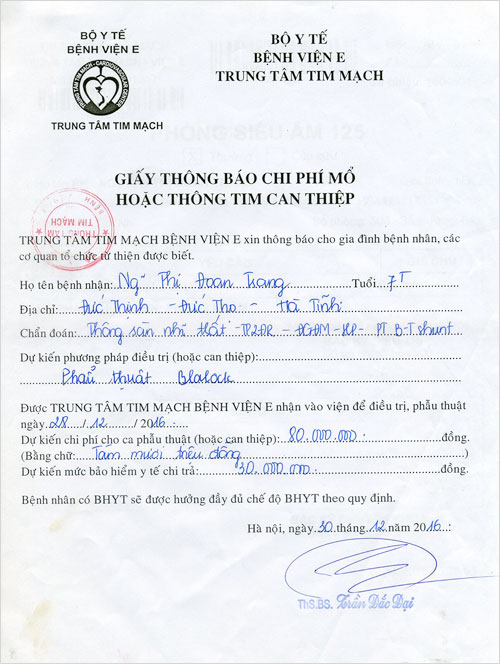 BỘ Y TẾ
BỆNH VIỆN E
TRUNG TÂM TIM MẠCH - CARDIOVASCULAR CENTER
TRUNG TÂM TIM MẠCH
BỘ Y TẾ
BỆNH VIỆN E
TRUNG TÂM TIM MẠCH
GIẤY THÔNG BÁO CHI PHÍ MỔ
HOẶC THÔNG TIM CAN THIỆP
TRUNG TÂM
TIM MẠCH
BỆNH
TRUNG TÂM TIM MẠCH BỆNH VIỆN E xin thông báo cho gia đình bệnh nhân, các
cơ quan tổ chức từ thiện được biết.
Họ tên bệnh nhân: Ng~ Thị Đoan Trang Tuổi: 7T
Địa chỉ: Đức Thịnh - Đức Thọ - Hà Tĩnh
Chẩn đoán: Thông sàn nhĩ thất - TP2ĐR - ĐGĐM - HP - PT B-T shunt
Dự kiến phương pháp điều trị (hoặc can thiệp):
Phẫu thuật Blalock
Được TRUNG TÂM TIM MẠCH BỆNH VIỆN E nhận vào viện để điều trị, phẫu thuật
ngày 28 / 12 / 2016
Dự kiến chi phí cho ca phẫu thuật (hoặc can thiệp): 80.000.000 đồng.
(Bằng chữ: Tám mươi triệu đồng)
Dự kiến mức bảo hiểm y tế chi trả: 30.000.000 đồng.
Bệnh nhân có BHYT sẽ được hưởng đầy đủ chế độ BHYT theo quy định.
Hà nội, ngày 30 tháng 12 năm 2016
ThS.BS. Trần Đắc Đại